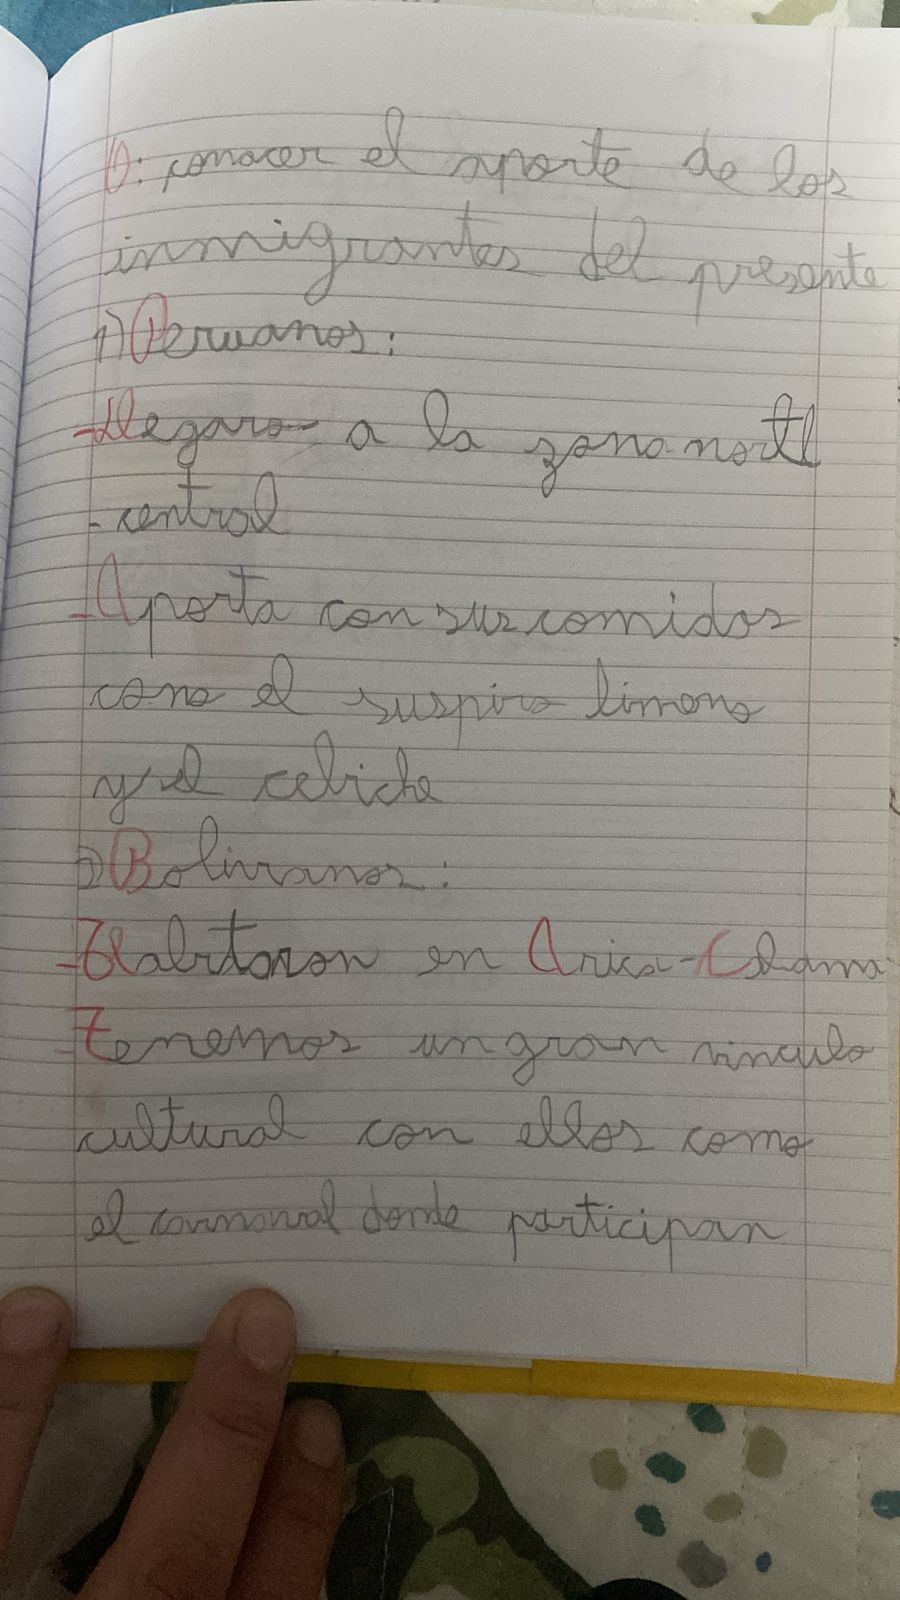 O: conocer el aporte de los
inmigrantes del presente
1) Peruanos:
-Llegaron a la zona norte
-central
-Aporta con sus comidas
como el suspiro limeno
y el cebiche
2) Bolivianos:
-Habitaron en Arica-Calama
-Tenemos un gran vinculo
cultural con ellos como
el carnaval donde participan